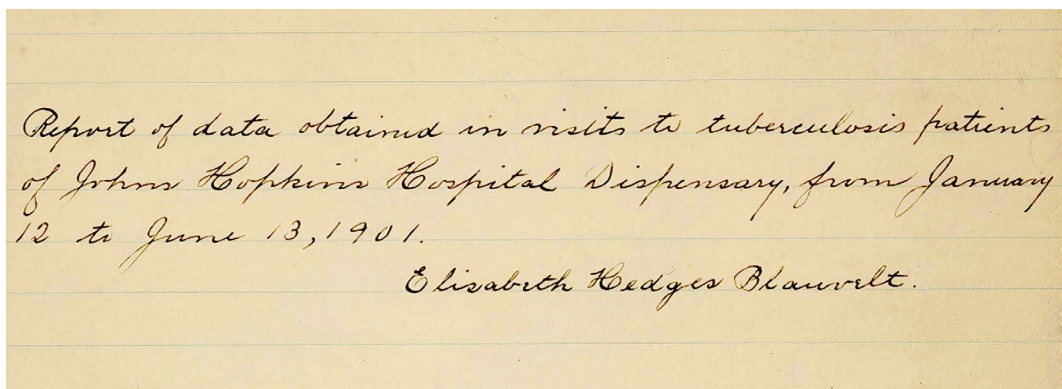 Report of data obtained in visits to tuberculosis patients
of Johns Hopkins Hospital Dispensary, from January
12 to June 13, 1901.
Elisabeth Hedges Blauvelt.